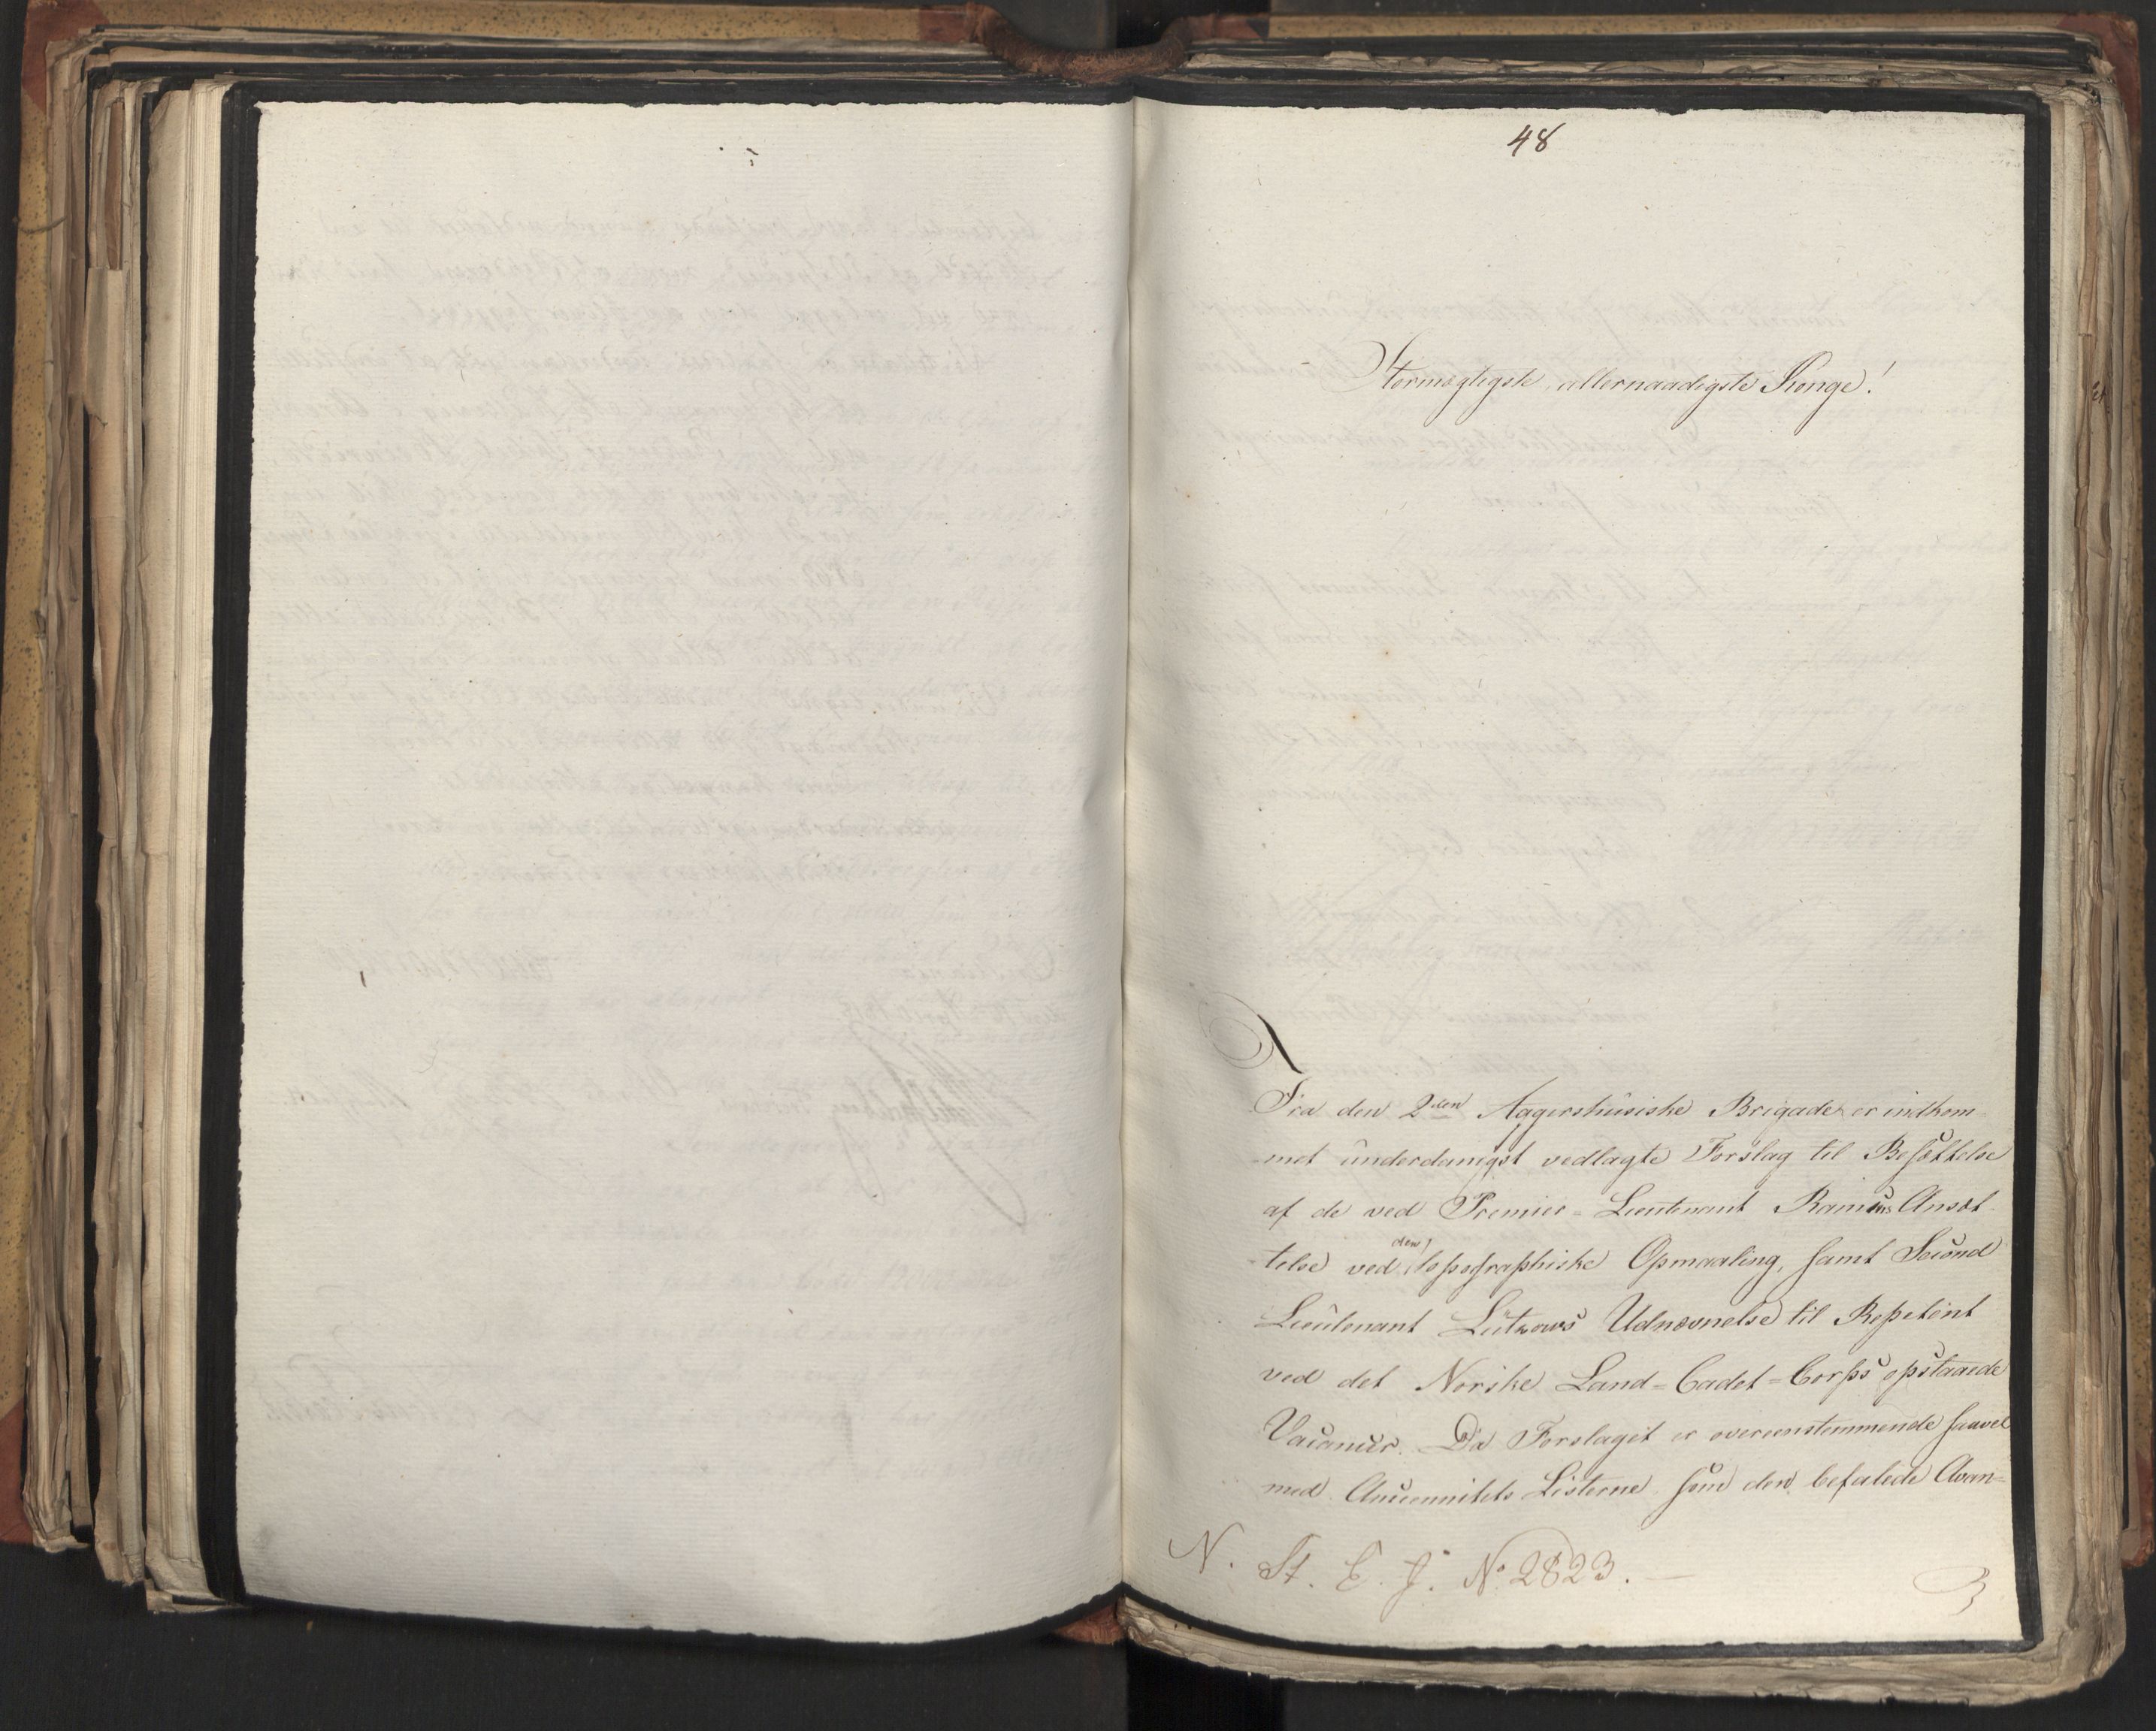 48
Stormægtigste, allernaadigste Konge!
Fra den 2den Aggershusiske Brigade er indkom-
met underdanigst vedlagte Forslag til Besættelse
af de ved Premier-Lieutenant Ramms Ansæt-
telse ved den topographiske Opmaaling, samt Second
Lieutenant Lützows Udnævnelse til Repetent
ved det Norske Land-Cadet-Corps opstaaede
Vacancer. Da Forslaget er overeenstemmende saavel
med Anciennitets Listerne som den befalede Avan-
N. St. E. J. No 2823.